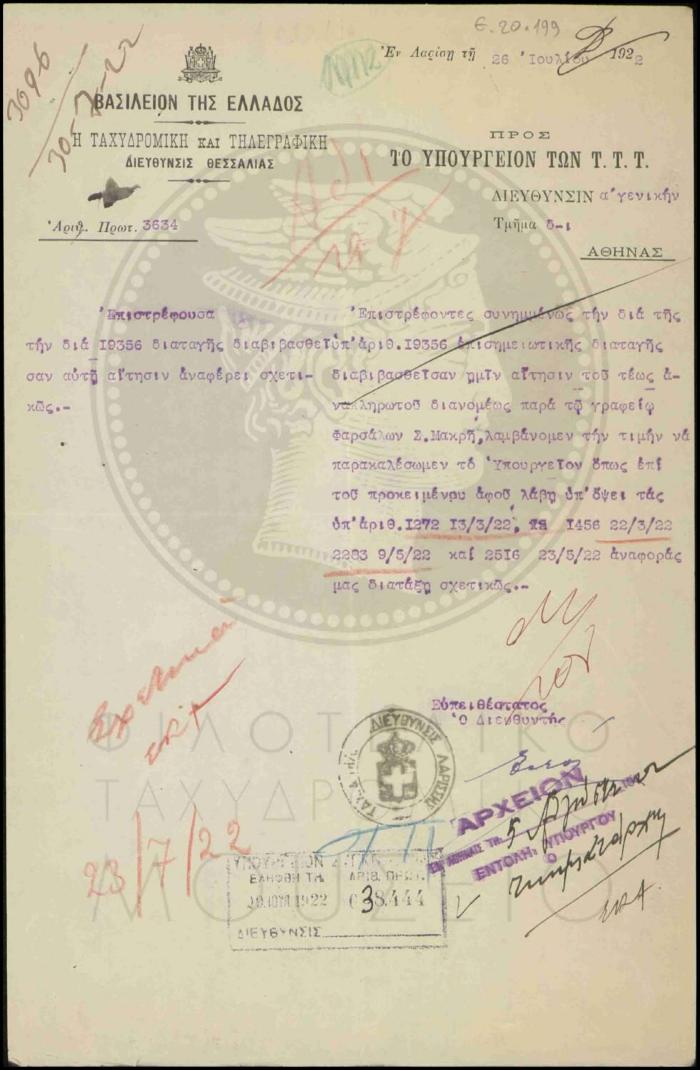 Ε.20.199
3096
30-7-22
Ἐν Λαρίσῃ τῇ 26 Ἰουλίου 1922
ΒΑΣΙΛΕΙΟΝ ΤΗΣ ΕΛΛΑΔΟΣ
Η ΤΑΧΥΔΡΟΜΙΚΗ ΚΑΙ ΤΗΛΕΓΡΑΦΙΚΗ
ΔΙΕΥΘΥΝΣΙΣ ΘΕΣΣΑΛΙΑΣ
Ἀριθ. Πρωτ. 3634
ΠΡΟΣ
ΤΟ ΥΠΟΥΡΓΕΙΟΝ ΤΩΝ Τ. Τ. Τ.
ΔΙΕΥΘΥΝΣΙΝ α΄γενικήν
Τμῆμα δ-ι
ΑΘΗΝΑΣ
Ἐπιστρέφουσα
τήν διά Ι9356 διαταγῆς διαβιβασθεῖ
σαν αὐτῇ αἴτησιν ἀναφέρει σχετι-
κῶς.-
Ἐπιστρέφοντες συνημμένως τήν διά τῆς
ὑπ'ἀριθ.Ι9356 ἐπισημειωτικῆς διαταγῆς
διαβιβασθεῖσαν ημῖν αἴτησιν τοῦ τέως ἀ-
νακληρωτοῦ διανομέως παρά τῷ γραφείῳ
Φαρσάλων Σ.Μακρῆ,λαμβάνομεν τήν τιμήν νά
παρακαλέσωμεν τό Ὑπουργεῖον ὅπως ἐπί
τοῦ προκειμένου ἀφοῦ λάβῃ ὑπ'ὄψει τάς
ὑπ'ἀριθ.Ι272 Ι3/3/22, Ι456 22/3/22
2283 9/5/22 καί 25Ι6 23/5/22 ἀναφοράς
μας διατάξῃ σχετικῶς.-
Εὐπειθέστατος
Ὁ Διευθυντής
ΔΙΕΥΘΥΝΣΙΣ ΛΑΡΙΣΣΗΣ
ΑΡΧΕΙΟΝ
ΕΝ ΑΘΗΝΑΙΣ ΤΗ 5
ΕΝΤΟΛῌ ΥΠΟΥΡΓΟΥ
Ο
23/7/22
ΥΠΟΥΡΓΕΙΟΝ
ΕΛΗΦΘΗ ΤΗ ΑΡΙΘ. ΠΡΩΤ.
1922 38444
ΔΙΕΥΘΥΝΣΙΣ
ΦΙΛΟΤΕΛΙΚΟ
ΤΑΧΥΔΡΟΜΙΚΟ
ΜΟΥΣΕΙΟ